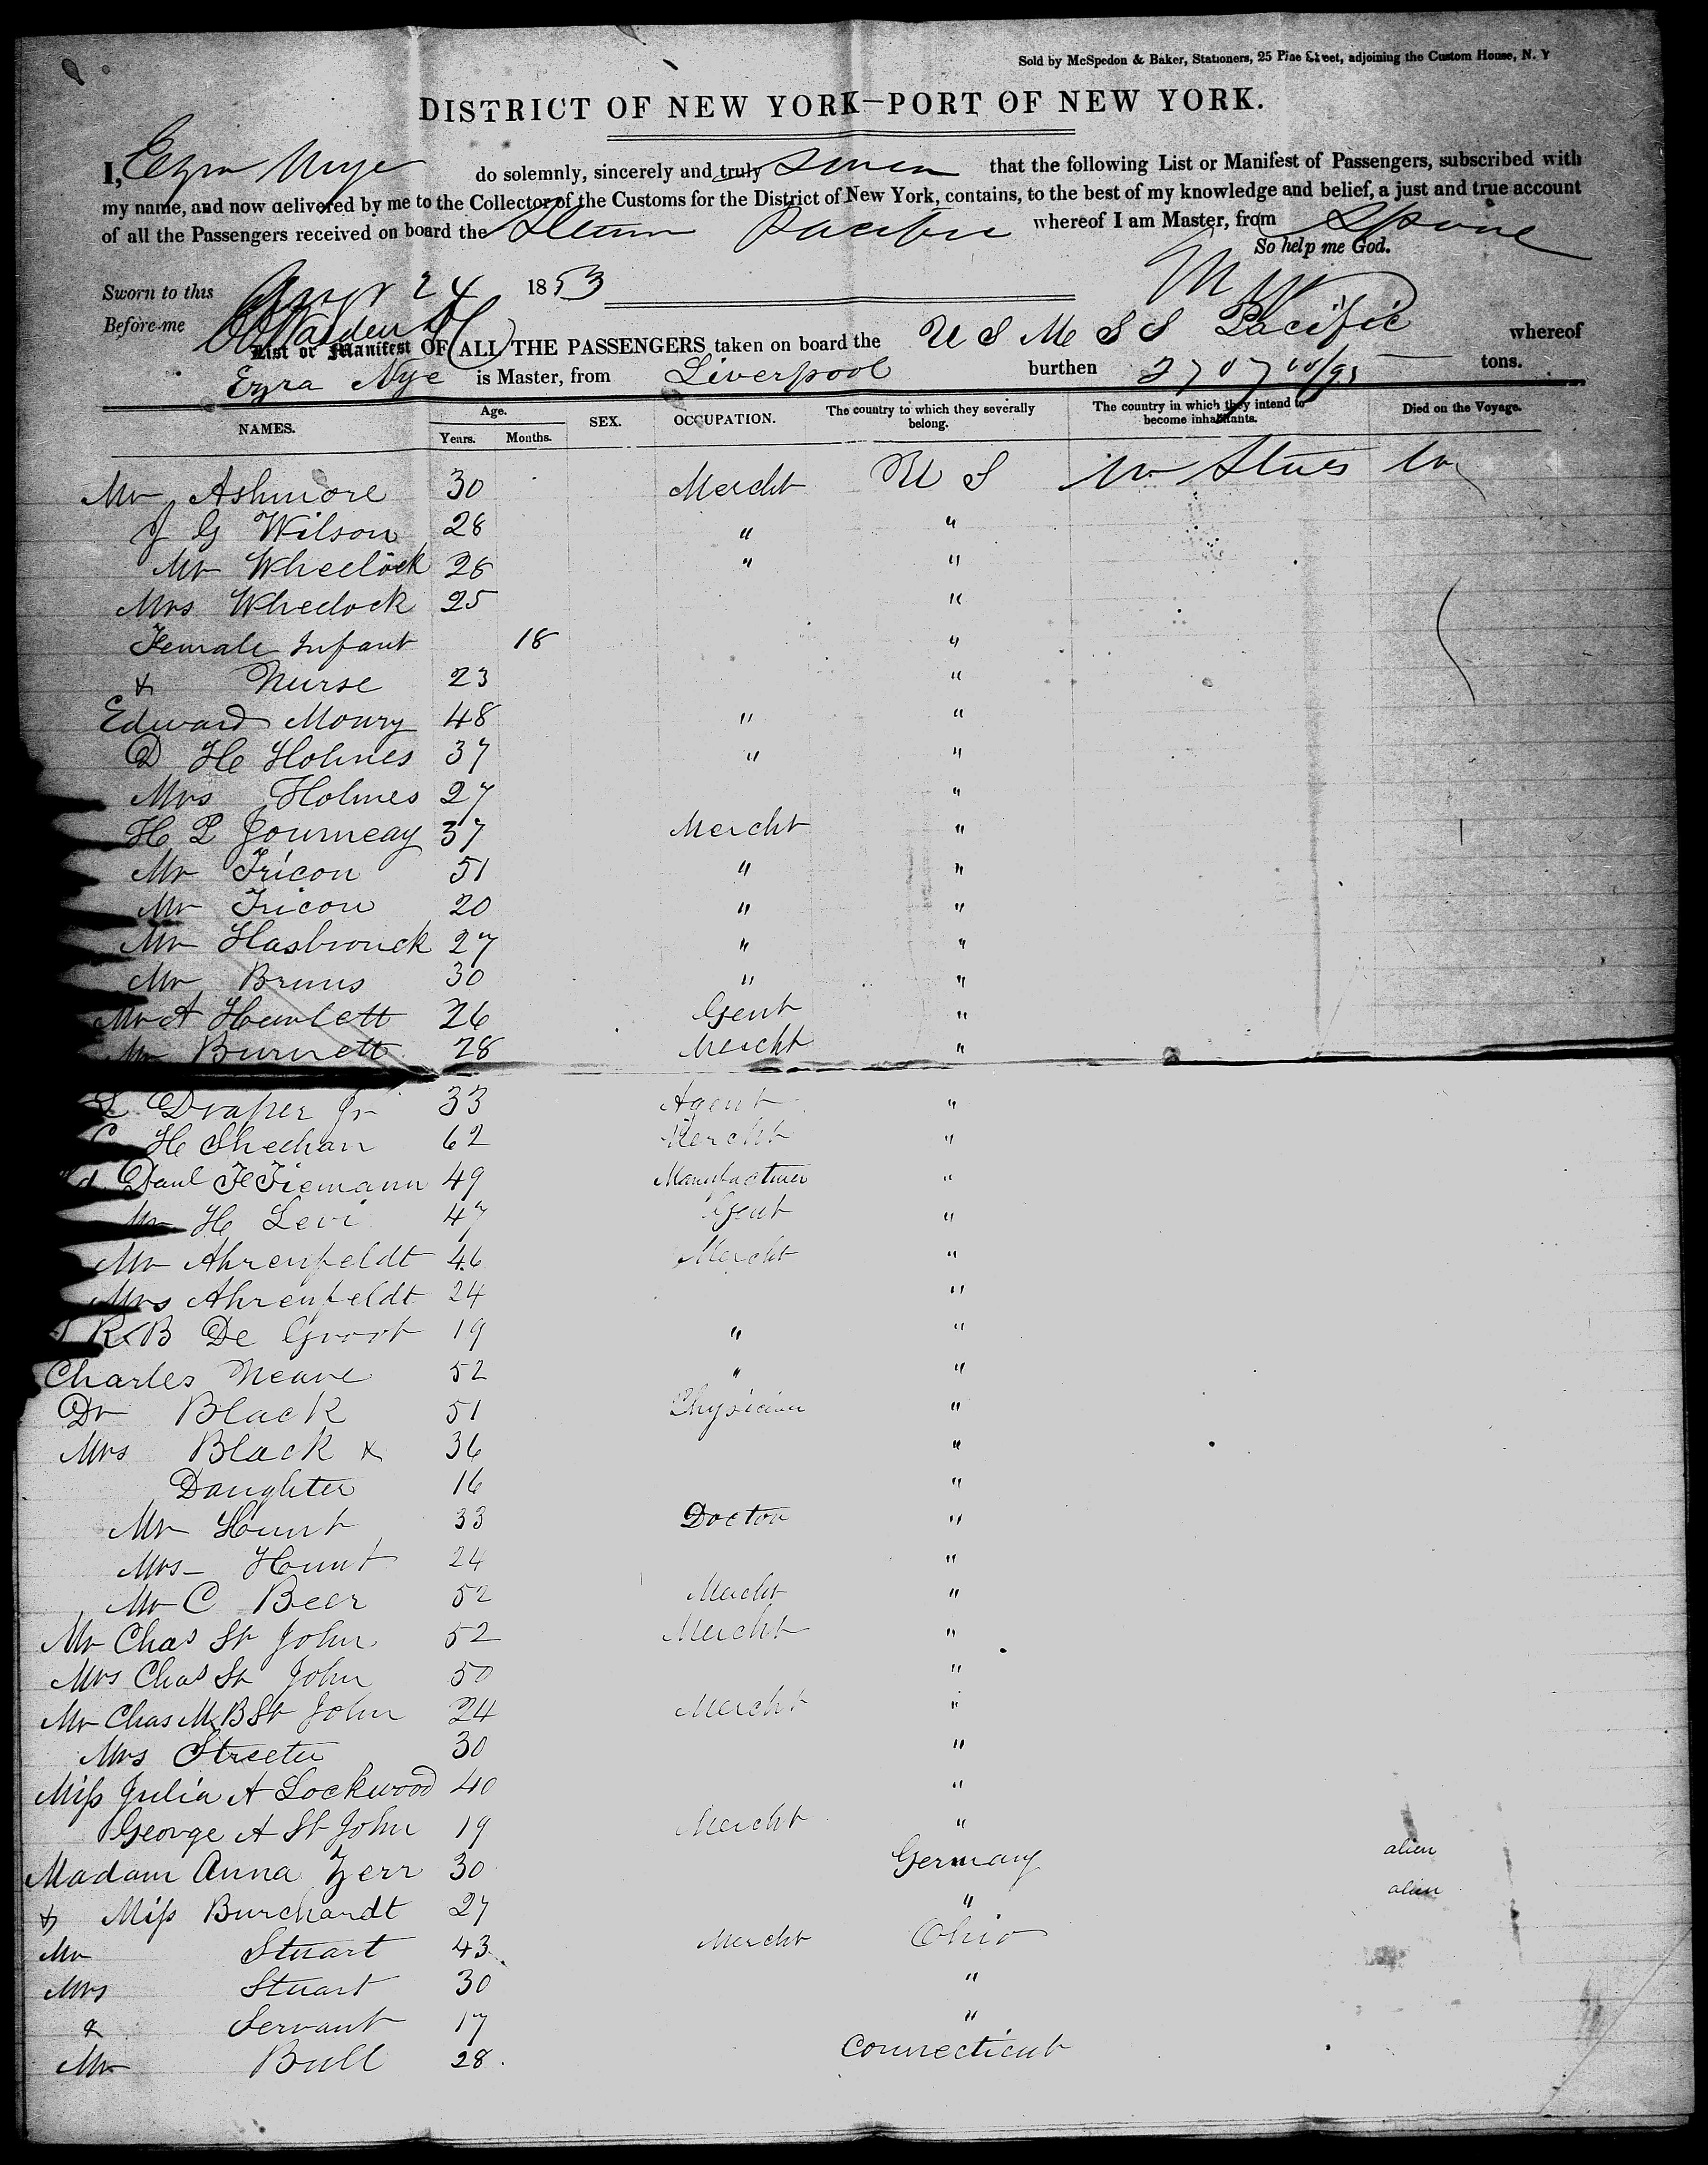 Sold by McSpedon & Baker, Stationers, 25 Pine Street, adjoining the Custom House, N. Y
DISTRICT OF NEW YORK—PORT OF NEW YORK.
I, Ezra Nye do solemnly, sincerely and truly swear that the following List or Manifest of Passengers, subscribed with
my name, and now delivered by me to the Collector of the Customs for the District of New York, contains, to the best of my knowledge and belief, a just and true account
of all the Passengers received on board the Steam Pacific whereof I am Master, from Lpool
So help me God.
Sworn to this 24 1853
Before me
List or Manifest OF ALL THE PASSENGERS taken on board the U S M S S Pacific whereof
Ezra Nye is Master, from Liverpool burthen 2707 tons.
NAMES. Age. Years. Months. SEX. OCCUPATION. The country to which they severally belong. The country in which they intend to become inhabitants. Died on the Voyage.
Mr Ashmore 30 Mercht U S
J G Wilson 28 " "
Mr Wheelock 28 " "
Mrs Wheelock 25 "
Female Infant 18 "
& Nurse 23 "
Edward Moury 48 " "
D H Holmes 37 " "
Mrs Holmes 27 "
H P Journeay 37 Mercht "
Mr Tricou 51 " "
Mr Tricou 20 " "
Mr Hasbrouck 27 " "
Mr Bruns 30 " "
Mr A Hewlett 26 Gent "
Mr Burnett 28 Mercht "
Draper Jr 33 Agent "
H Sheehan 62 Mercht "
Danl F Tiemann 49 Manufacturer "
Mr H Levi 47 Gent "
Mr Ahrenfeldt 46 Mercht "
Mrs Ahrenfeldt 24 "
R B De Groot 19 " "
Charles Neave 52 " "
Dr Black 51 Physician "
Mrs Black & 36 "
Daughter 16 "
Mr Hunt 33 Doctor "
Mrs Hunt 24 "
Mr C Beer 52 Mercht "
Mr Chas St John 52 Mercht "
Mrs Chas St John 50 "
Mr Chas M B St John 24 Mercht "
Mrs Streeter 30 "
Miss Julia A Lockwood 40 "
George A St John 19 Mercht "
Madam Anna Zerr 30 Germany alien
& Miss Burchardt 27 " alien
Mr Stuart 43 Mercht Ohio
Mrs Stuart 30 "
& Servant 17 "
Mr Bull 28 Connecticut